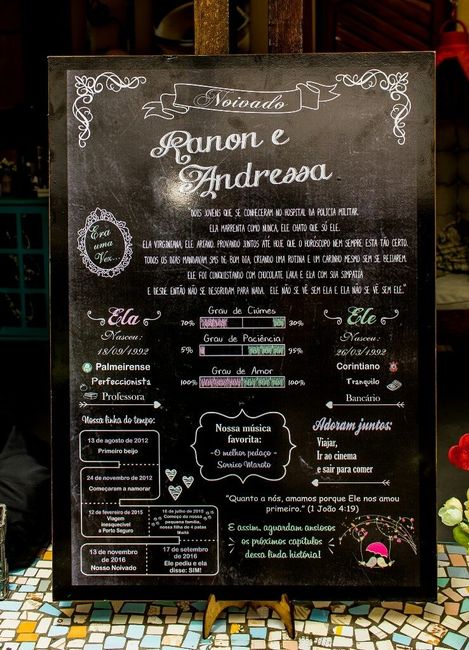 Noivado
Ranon e
Andressa
Era
uma
Vez...
"DOIS JOVENS QUE SE CONHECERAM NO HOSPITAL DA POLÍCIA MILITAR.
ELA MARRENTA COMO NUNCA, ELE CHATO QUE SÓ ELE.
ELA VIRGINIANA, ELE ARIANO, PROVANDO JUNTOS ATÉ HOJE QUE O HORÓSCOPO NEM SEMPRE ESTA TÃO CERTO.
TODOS OS DIAS MANDAVAM SMS DE BOM DIA, CRIANDO UMA ROTINA E UM CARINHO MESMO SEM SE BEIJAREM.
ELE FOI CONQUISTANDO COM CHOCOLATE LAKA E ELA COM SUA SIMPATIA
E DESDE ENTÃO NÃO SE DESGRUDAM PARA NADA. ELE NÃO SE VÊ SEM ELA E ELA NÃO SE VÊ SEM ELE."
Ela
Nasceu:
18/09/1992
Palmeirense
Perfeccionista
Professora
Grau de Ciúmes
70% 30%
Grau de Paciência
5% 95%
Grau de Amor
100% 100%
Ele
Nasceu:
26/03/1992
Corintiano
Tranquilo
Bancário
Nossa linha do tempo:
13 de agosto de 2012
Primeiro beijo
24 de novembro de 2012
Começaram a namorar
12 de fevereiro de 2015
Viagem
inesquecível
a Porto Seguro
16 de julho de 2015
Começo da nossa
pequena família,
nossa filha de 4 patas
13 de novembro
de 2016
Nosso Noivado
17 de setembro
de 2016
Ele pediu e ela
disse: SIM!
Nossa música
favorita:
-O melhor pedaço -
Sorriso Maroto
Adoram juntos:
Viajar,
Ir ao cinema
e sair para comer
"Quanto a nós, amamos porque Ele nos amou
primeiro." (1 João 4:19)
E assim, aguardam ansiosos
os próximos capítulos
dessa linda história!